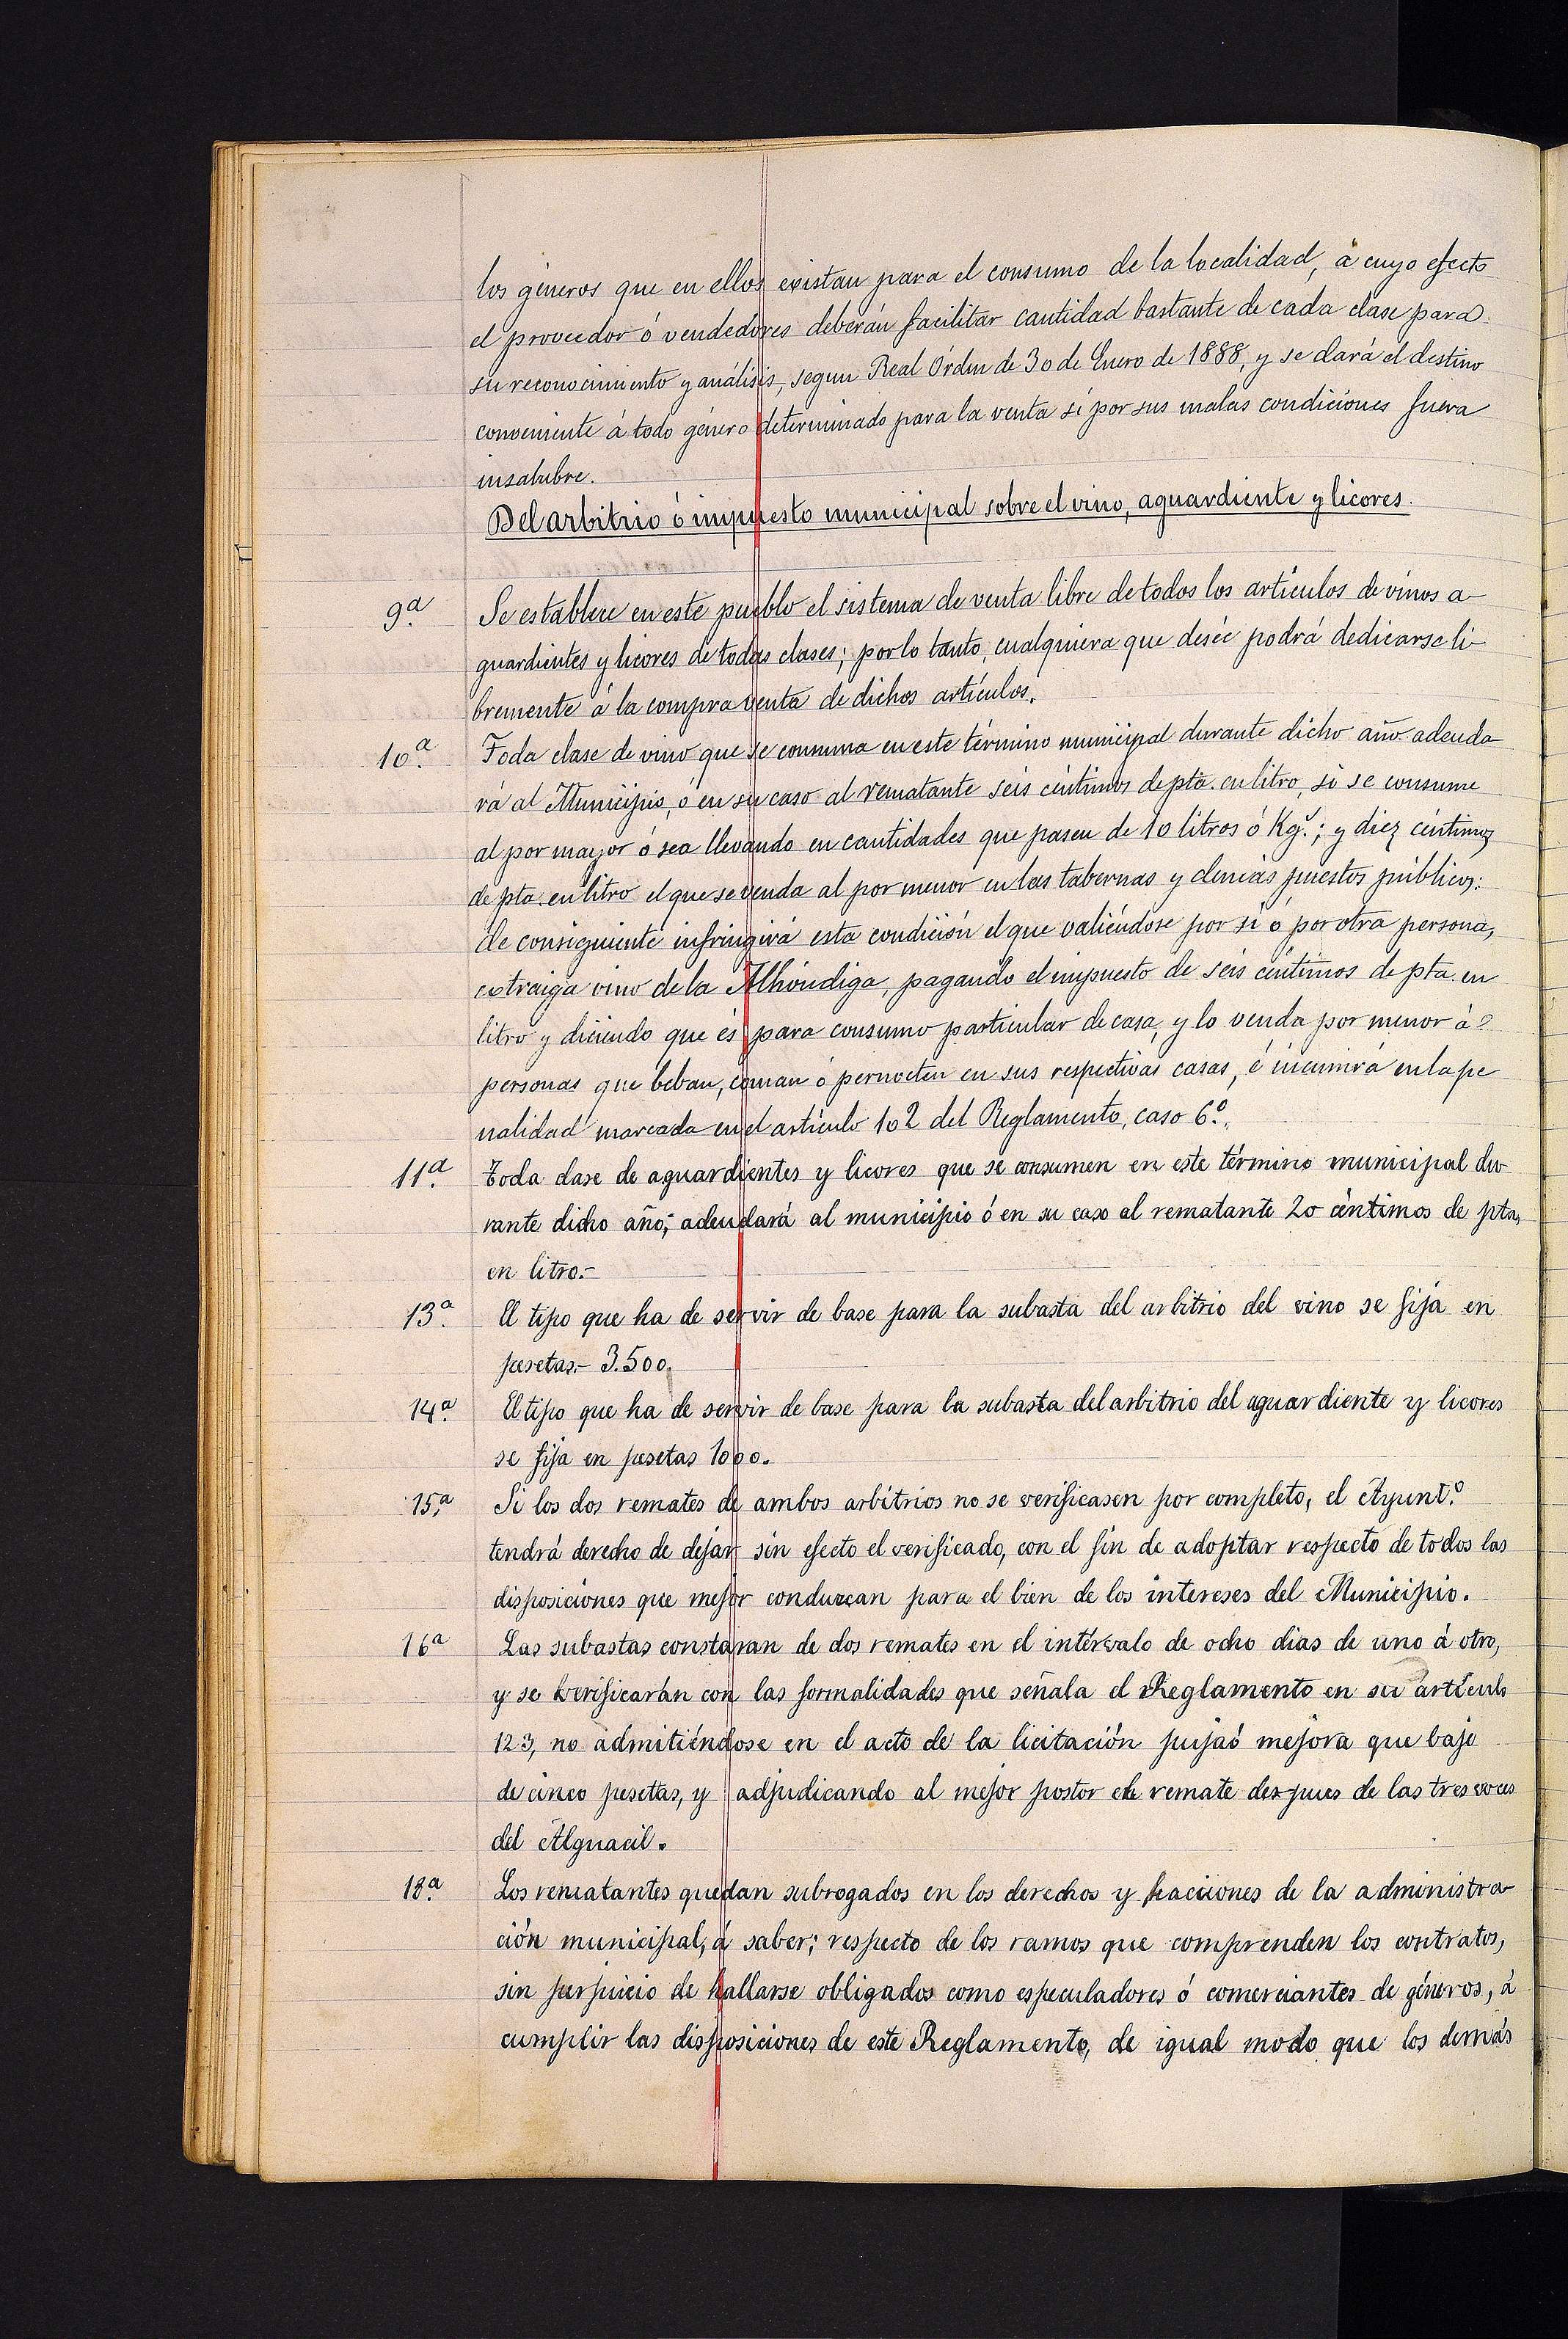 los géneros que en ellos existan para el consumo de la localidad, á cuyo efecto
el proveedor ó vendedores deberán facilitar cantidad bastante de cada clase para
su reconocimiento y análisis, segun Real Órden de 30 de Enero de 1888, y se dará el destino
conveniente á todo género determinado para la venta sí por sus malas condiciones fuera
insalubre.
Del arbitrio ó impuesto municipal sobre el vino, aguardiente y licores.
9.ª Se establece en este pueblo el sistema de venta libre de todos los artículos de vinos a-
guardientes y licores de todas clases; por lo tanto, cualquiera que deseé podrá dedicarse li-
bremente á la compra venta de dichos artículos.
10.ª Toda clase de vino que se consuma en este término municipal durante dicho año adeuda-
rá al Municipio, ó en su caso al rematante seis céntimos de pta. en litro, si se consume
al por mayor ó sea llevando en cantidades que pasen de 10 litros ó Kg.ˢ; y diez céntimos
de pta. en litro el que se venda al por menor en las tabernas y demás puestos públicos:
de consiguiente infringirá esta condición el que valiéndose por sí ó por otra persona,
extraiga vino de la Alhóndiga, pagando el impuesto de seis céntimos de pta. en
litro y diciendo que és para consumo particular de casa, y lo venda por menor á
personas que beban, coman ó pernocten en sus respectivas casas, é incurrirá en la pe
nalidad marcada en el artículo 102 del Reglamento, caso 6.º.
11.ª Toda clase de aguardientes y licores que se consumen en este término municipal du-
rante dicho año, adeudará al municipio ó en su caso al rematante 20 céntimos de pta,
en litro.-
13.ª El tipo que ha de servir de base para la subasta del arbitrio del vino se fija en
pesetas.- 3.500.
14.ª El tipo que ha de servir de base para la subasta del arbitrio del aguardiente y licores
se fija en pesetas 1000.
15.ª Si los dos remates de ambos arbitrios no se verificasen por completo, el Ayunt.º
tendrá derecho de dejar sin efecto el verificado, con el fin de adoptar respecto de todos las
disposiciones que mejor conduzcan para el bien de los intereses del Municipio.
16ª Las subastas constaran de dos remates en el intérvalo de ocho dias de uno á otro,
y se verificarán con las formalidades que señala el Reglamento en su artículo
123, no admitiéndose en el acto de la licitación puja ó mejora que baje
de cinco pesetas, y adjudicando al mejor postor el remate despues de las tres voces
del Alguacil.
18.ª Los rematantes quedan subrogados en los derechos y acciones de la administra-
ción municipal, á saber; respecto de los ramos que comprenden los contratos,
sin perjuicio de hallarse obligados como especuladores ó comerciantes de géneros, á
cumplir las disposiciones de este Reglamento, de igual modo que los demás